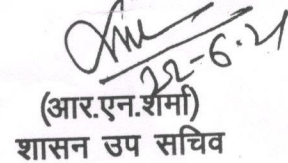 22-6-21
(आर.एन.शर्मा)
शासन उप सचिव